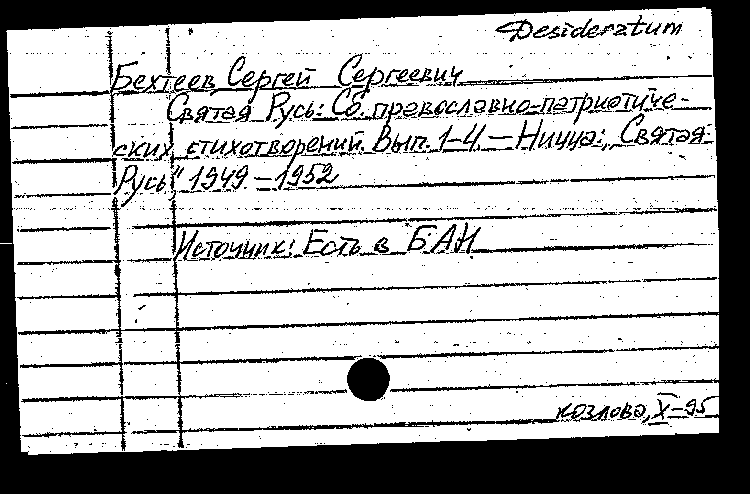 Desideratum
Бехтеев, Сергей Сергеевич
Святая Русь: Сб. православно-патриотиче-
ских стихотворений. Вып. 1-4. — Ницца: „Святая
Русь" 1949 – 1952
Источник: Есть в БАН
Козлова, X-95